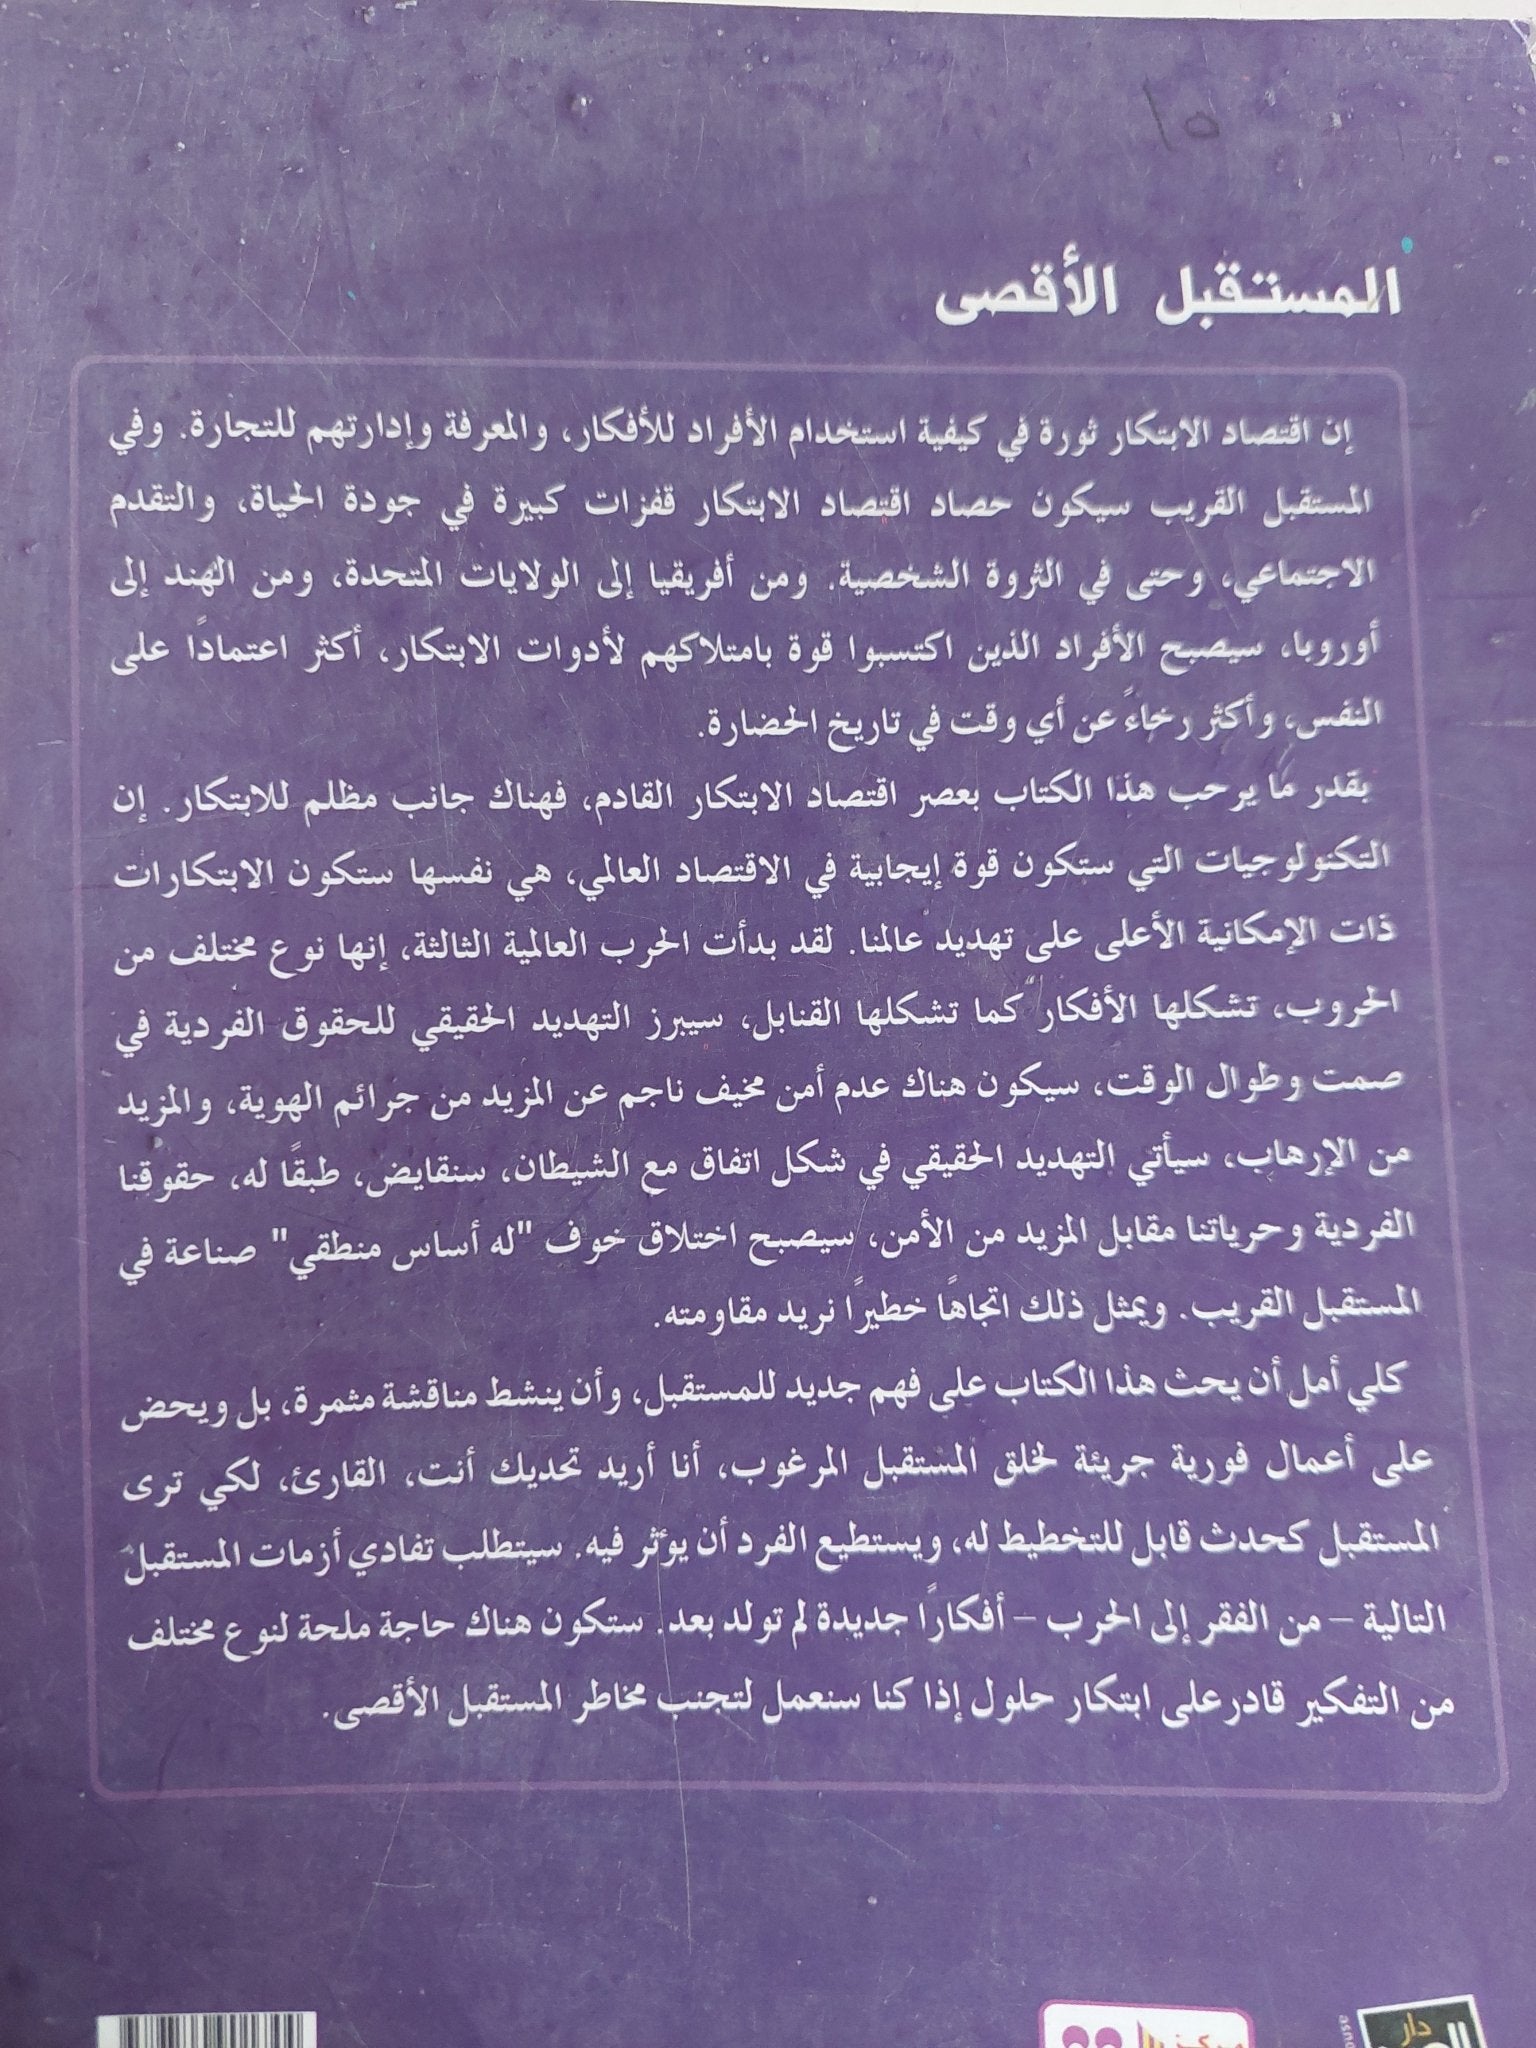 ١٥
المستقبل الأقصى
إن اقتصاد الابتكار ثورة في كيفية استخدام الأفراد للأفكار، والمعرفة وإدارتهم للتجارة. وفي
المستقبل القريب سيكون حصاد اقتصاد الابتكار قفزات كبيرة في جودة الحياة، والتقدم
الاجتماعي، وحتى في الثروة الشخصية. ومن أفريقيا إلى الولايات المتحدة، ومن الهند إلى
أوروبا، سيصبح الأفراد الذين اكتسبوا قوة بامتلاكهم لأدوات الابتكار، أكثر اعتمادًا على
النفس، وأكثر رخاءً عن أي وقت في تاريخ الحضارة.
بقدر ما يرحب هذا الكتاب بعصر اقتصاد الابتكار القادم، فهناك جانب مظلم للابتكار. إن
التكنولوجيات التي ستكون قوة إيجابية في الاقتصاد العالمي، هي نفسها ستكون الابتكارات
ذات الإمكانية الأعلى على تهديد عالمنا. لقد بدأت الحرب العالمية الثالثة، إنها نوع مختلف من
الحروب، تشكلها الأفكار كما تشكلها القنابل، سيبرز التهديد الحقيقي للحقوق الفردية في
صمت وطوال الوقت، سيكون هناك عدم أمن مخيف ناجم عن المزيد من جرائم الهوية، والمزيد
من الإرهاب، سيأتي التهديد الحقيقي في شكل اتفاق مع الشيطان، سنقايض، طبقًا له، حقوقنا
الفردية وحرياتنا مقابل المزيد من الأمن، سيصبح اختلاق خوف "له أساس منطقي" صناعة في
المستقبل القريب. ويمثل ذلك اتجاهًا خطيرًا نريد مقاومته.
كلي أمل أن يحث هذا الكتاب على فهم جديد للمستقبل، وأن ينشط مناقشة مثمرة، بل ويحض
على أعمال فورية جريئة لخلق المستقبل المرغوب، أنا أريد تحديك أنت، القارئ، لكي ترى
المستقبل كحدث قابل للتخطيط له، ويستطيع الفرد أن يؤثر فيه. سيتطلب تفادي أزمات المستقبل
التالية – من الفقر إلى الحرب – أفكارًا جديدة لم تولد بعد. ستكون هناك حاجة ملحة لنوع مختلف
من التفكير قادر على ابتكار حلول إذا كنا سنعمل لتجنب مخاطر المستقبل الأقصى.
مركز
دار